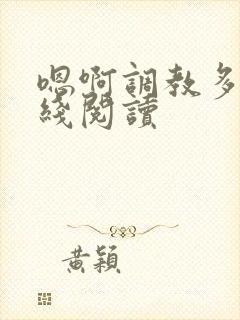 嗯啊調教多
綫閱讀
黃穎